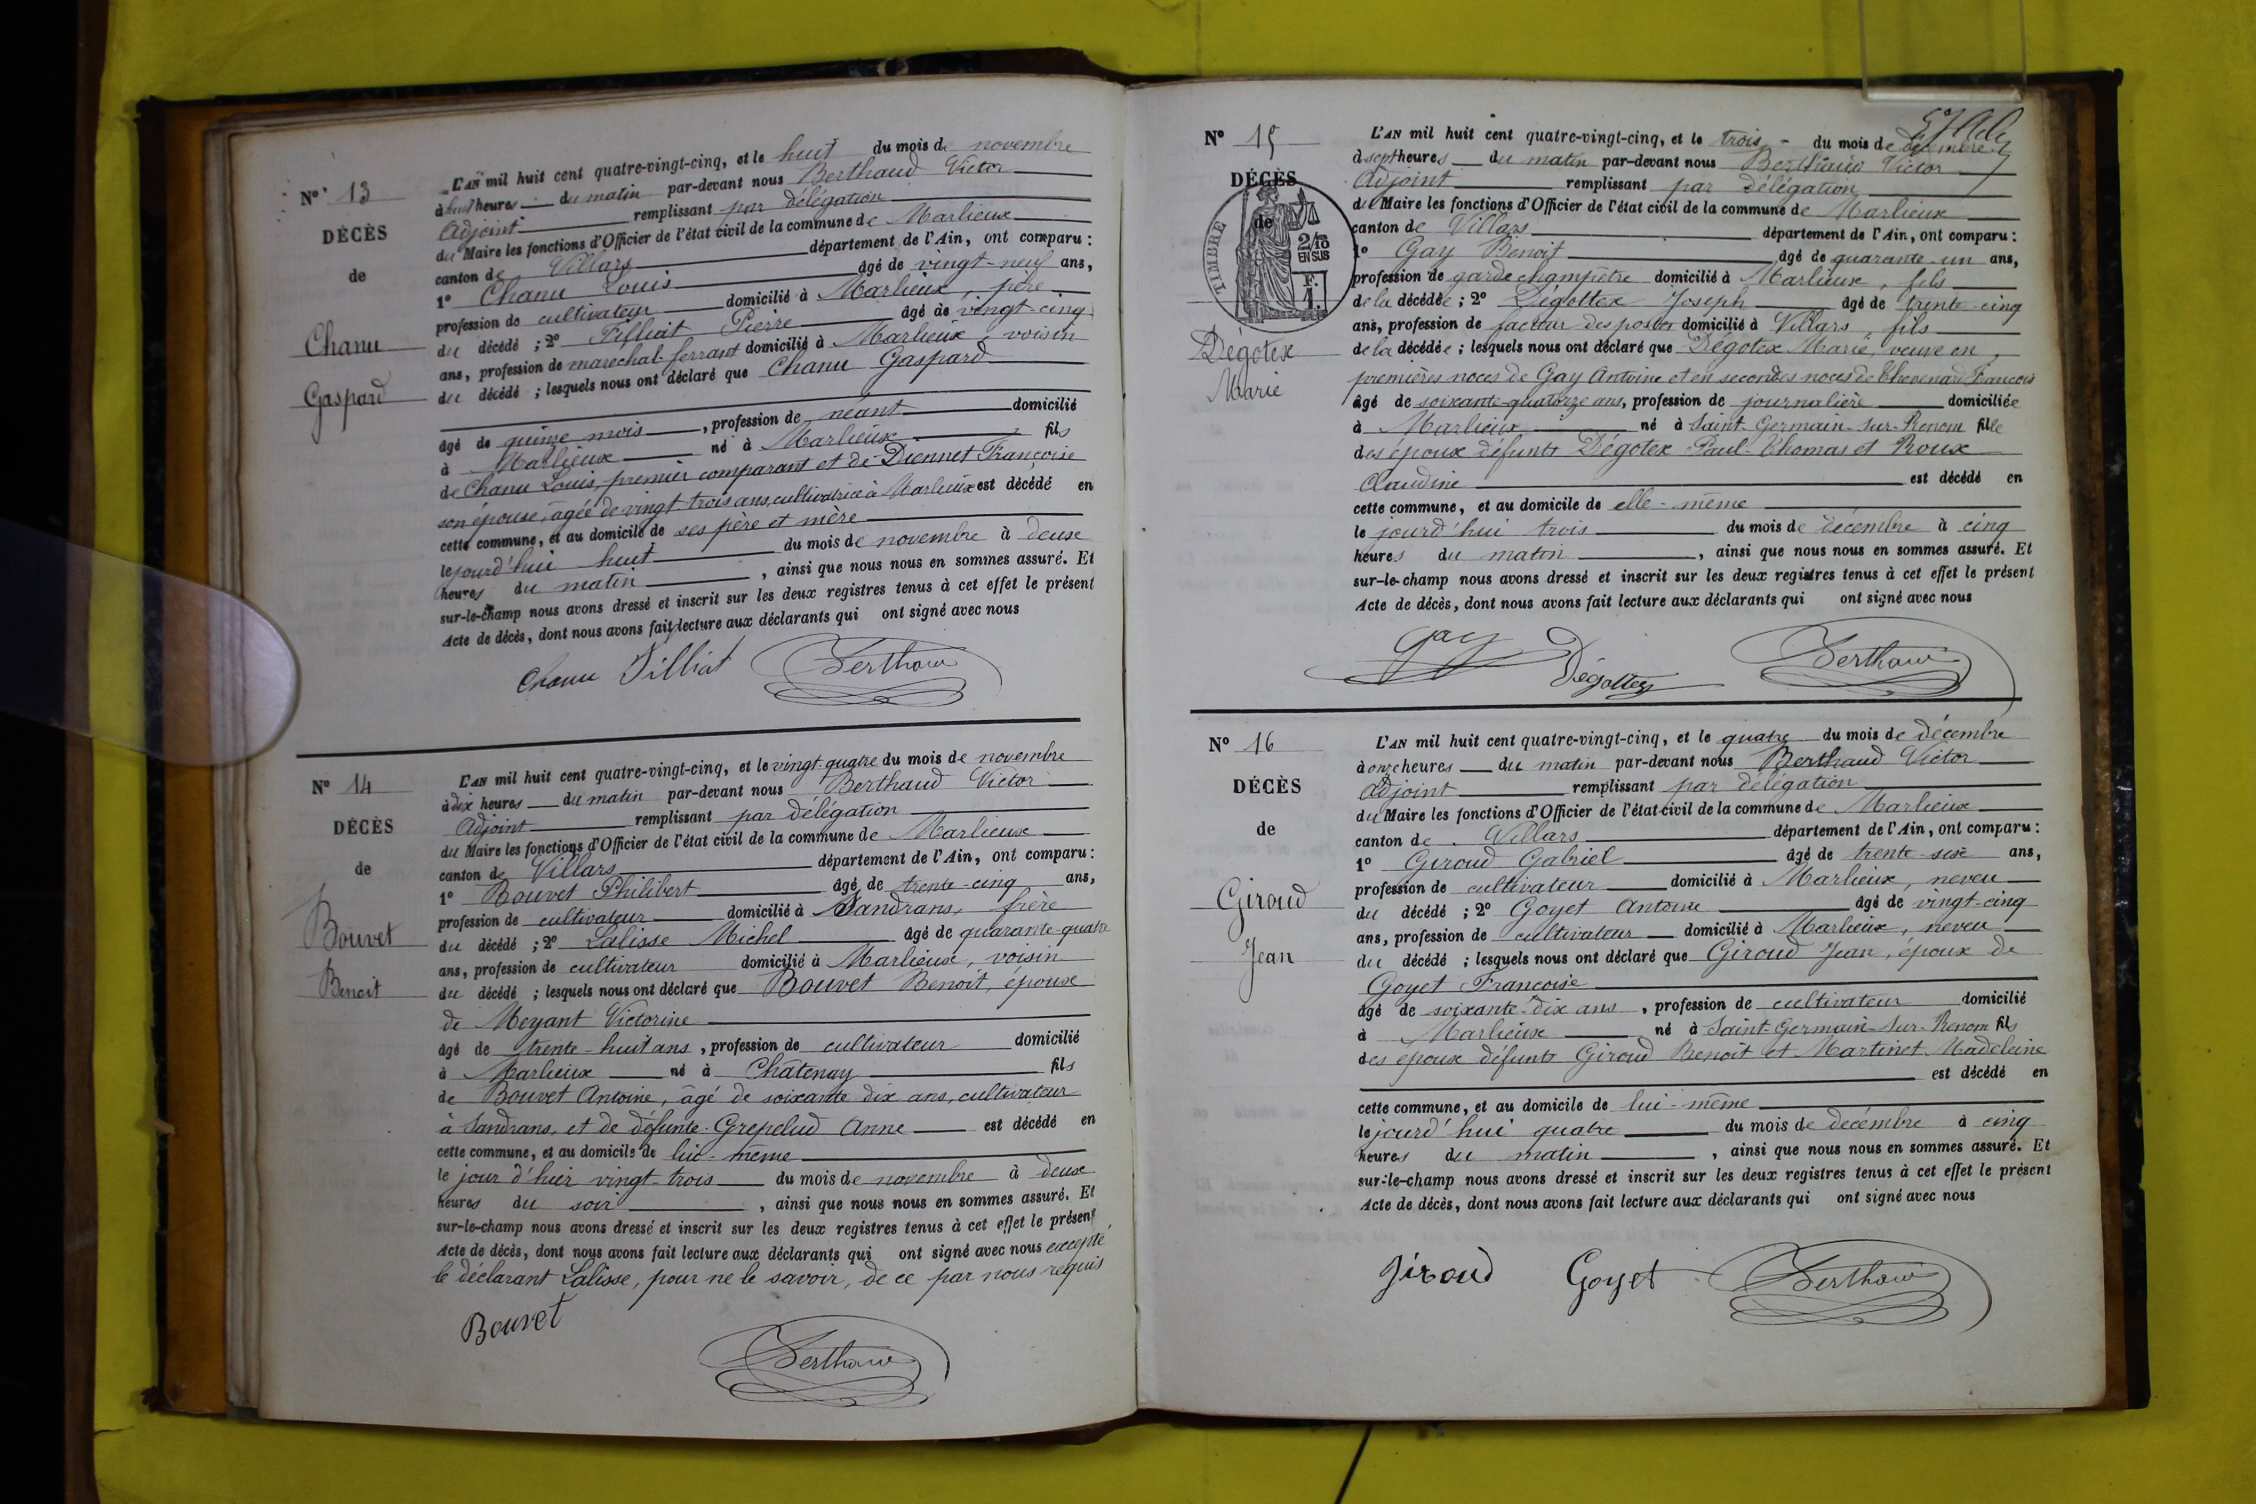 N° 13
DÉCÈS
de
Chanu
Gaspard
L'AN mil huit cent quatre-vingt-cinq, et le huit du mois de novembre
à huit heures du matin par-devant nous Berthaud Victor
Adjoint remplissant par délégation
du Maire les fonctions d'Officier de l'état civil de la commune de Marlieux
canton de Villars département de l'Ain, ont comparu :
1° Chanu Louis âgé de vingt-neuf ans,
profession de cultivateur domicilié à Marlieux, père
du décédé ; 2° Pilliat Pierre âgé de vingt-cinq
ans, profession de marechal-ferrant domicilié à Marlieux voisin
du décédé ; lesquels nous ont déclaré que Chanu Gaspard
âgé de quinze mois, profession de néant domicilié
à Marlieux né à Marlieux fils
de Chanu Louis, premier comparant et de Diennet Françoise
son épouse, âgée de vingt trois ans, cultivatrice à Marlieux est décédé en
cette commune, et au domicile de ses père et mère
le jourd'hui huit du mois de novembre à deux
heures du matin, ainsi que nous nous en sommes assuré. Et
sur-le-champ nous avons dressé et inscrit sur les deux registres tenus à cet effet le présent
Acte de décès, dont nous avons fait lecture aux déclarants qui ont signé avec nous
Chanu Pilliat Berthaud
N° 14
DÉCÈS
de
Bouvet
Benoit
L'AN mil huit cent quatre-vingt-cinq, et le vingt-quatre du mois de novembre
à dix heures du matin par-devant nous Berthaud Victor
Adjoint remplissant par délégation
du Maire les fonctions d'Officier de l'état civil de la commune de Marlieux
canton de Villars département de l'Ain, ont comparu :
1° Bouvet Philibert âgé de trente-cinq ans,
profession de cultivateur domicilié à Sandrans, frère
du décédé ; 2° Lalisse Michel âgé de quarante-quatre
ans, profession de cultivateur domicilié à Marlieux, voisin
du décédé ; lesquels nous ont déclaré que Bouvet Benoit, épouse
de Meyant Victorine
âgé de trente-huit ans, profession de cultivateur domicilié
à Marlieux né à Châtenay fils
de Bouvet Antoine, âgé de soixante dix ans, cultivateur
à Sandrans, et de défunte Grepelud Anne est décédé en
cette commune, et au domicile de lui-même
le jour d'hier vingt-trois du mois de novembre à deux
heures du soir, ainsi que nous nous en sommes assuré. Et
sur-le-champ nous avons dressé et inscrit sur les deux registres tenus à cet effet le présent
Acte de décès, dont nous avons fait lecture aux déclarants qui ont signé avec nous excepté
le déclarant Lalisse, pour ne le savoir, de ce par nous requis
Bouvet
Berthaud
N° 15
DÉCÈS
de
TIMBRE
2/10
EN SUS
F.
1.
Dégotex
Marie
L'AN mil huit cent quatre-vingt-cinq, et le trois du mois de décembre
à sept heures du matin par-devant nous Berthaud Victor
Adjoint remplissant par délégation
du Maire les fonctions d'Officier de l'état civil de la commune de Marlieux
canton de Villars département de l'Ain, ont comparu :
1° Gay Benoit âgé de quarante-un ans,
profession de garde champêtre domicilié à Marlieux, fils
de la décédée ; 2° Dégottex Joseph âgé de trente-cinq
ans, profession de facteur des postes domicilié à Villars, fils
de la décédée ; lesquels nous ont déclaré que Dégotex Marie, veuve en
premières noces de Gay Antoine et en secondes noces de Chevenard François
âgé de soixante-quatorze ans, profession de journalière domiciliée
à Marlieux né à Saint-Germain-sur-Renom fille
des époux défunts Dégotex Paul-Thomas et Roux
Claudine est décédé en
cette commune, et au domicile de elle-même
le jourd'hui trois du mois de décembre à cinq
heures du matin, ainsi que nous nous en sommes assuré. Et
sur-le-champ nous avons dressé et inscrit sur les deux registres tenus à cet effet le présent
Acte de décès, dont nous avons fait lecture aux déclarants qui ont signé avec nous
Gay Dégottex Berthaud
N° 16
DÉCÈS
de
Giroud
Jean
L'AN mil huit cent quatre-vingt-cinq, et le quatre du mois de décembre
à onze heures du matin par-devant nous Berthaud Victor
Adjoint remplissant par délégation
du Maire les fonctions d'Officier de l'état-civil de la commune de Marlieux
canton de Villars département de l'Ain, ont comparu :
1° Giroud Gabriel âgé de trente-six ans,
profession de cultivateur domicilié à Marlieux, neveu
du décédé ; 2° Goyet Antoine âgé de vingt-cinq
ans, profession de cultivateur domicilié à Marlieux, neveu
du décédé ; lesquels nous ont déclaré que Giroud Jean, époux de
Goyet Françoise
âgé de soixante-dix ans, profession de cultivateur domicilié
à Marlieux né à Saint-Germain-sur-Renom fils
des époux défunts Giroud Benoit et Martinet Madeleine
est décédé en
cette commune, et au domicile de lui-même
le jourd'hui quatre du mois de décembre à cinq
heures du matin, ainsi que nous nous en sommes assuré. Et
sur-le-champ nous avons dressé et inscrit sur les deux registres tenus à cet effet le présent
Acte de décès, dont nous avons fait lecture aux déclarants qui ont signé avec nous
Giroud Goyet Berthaud